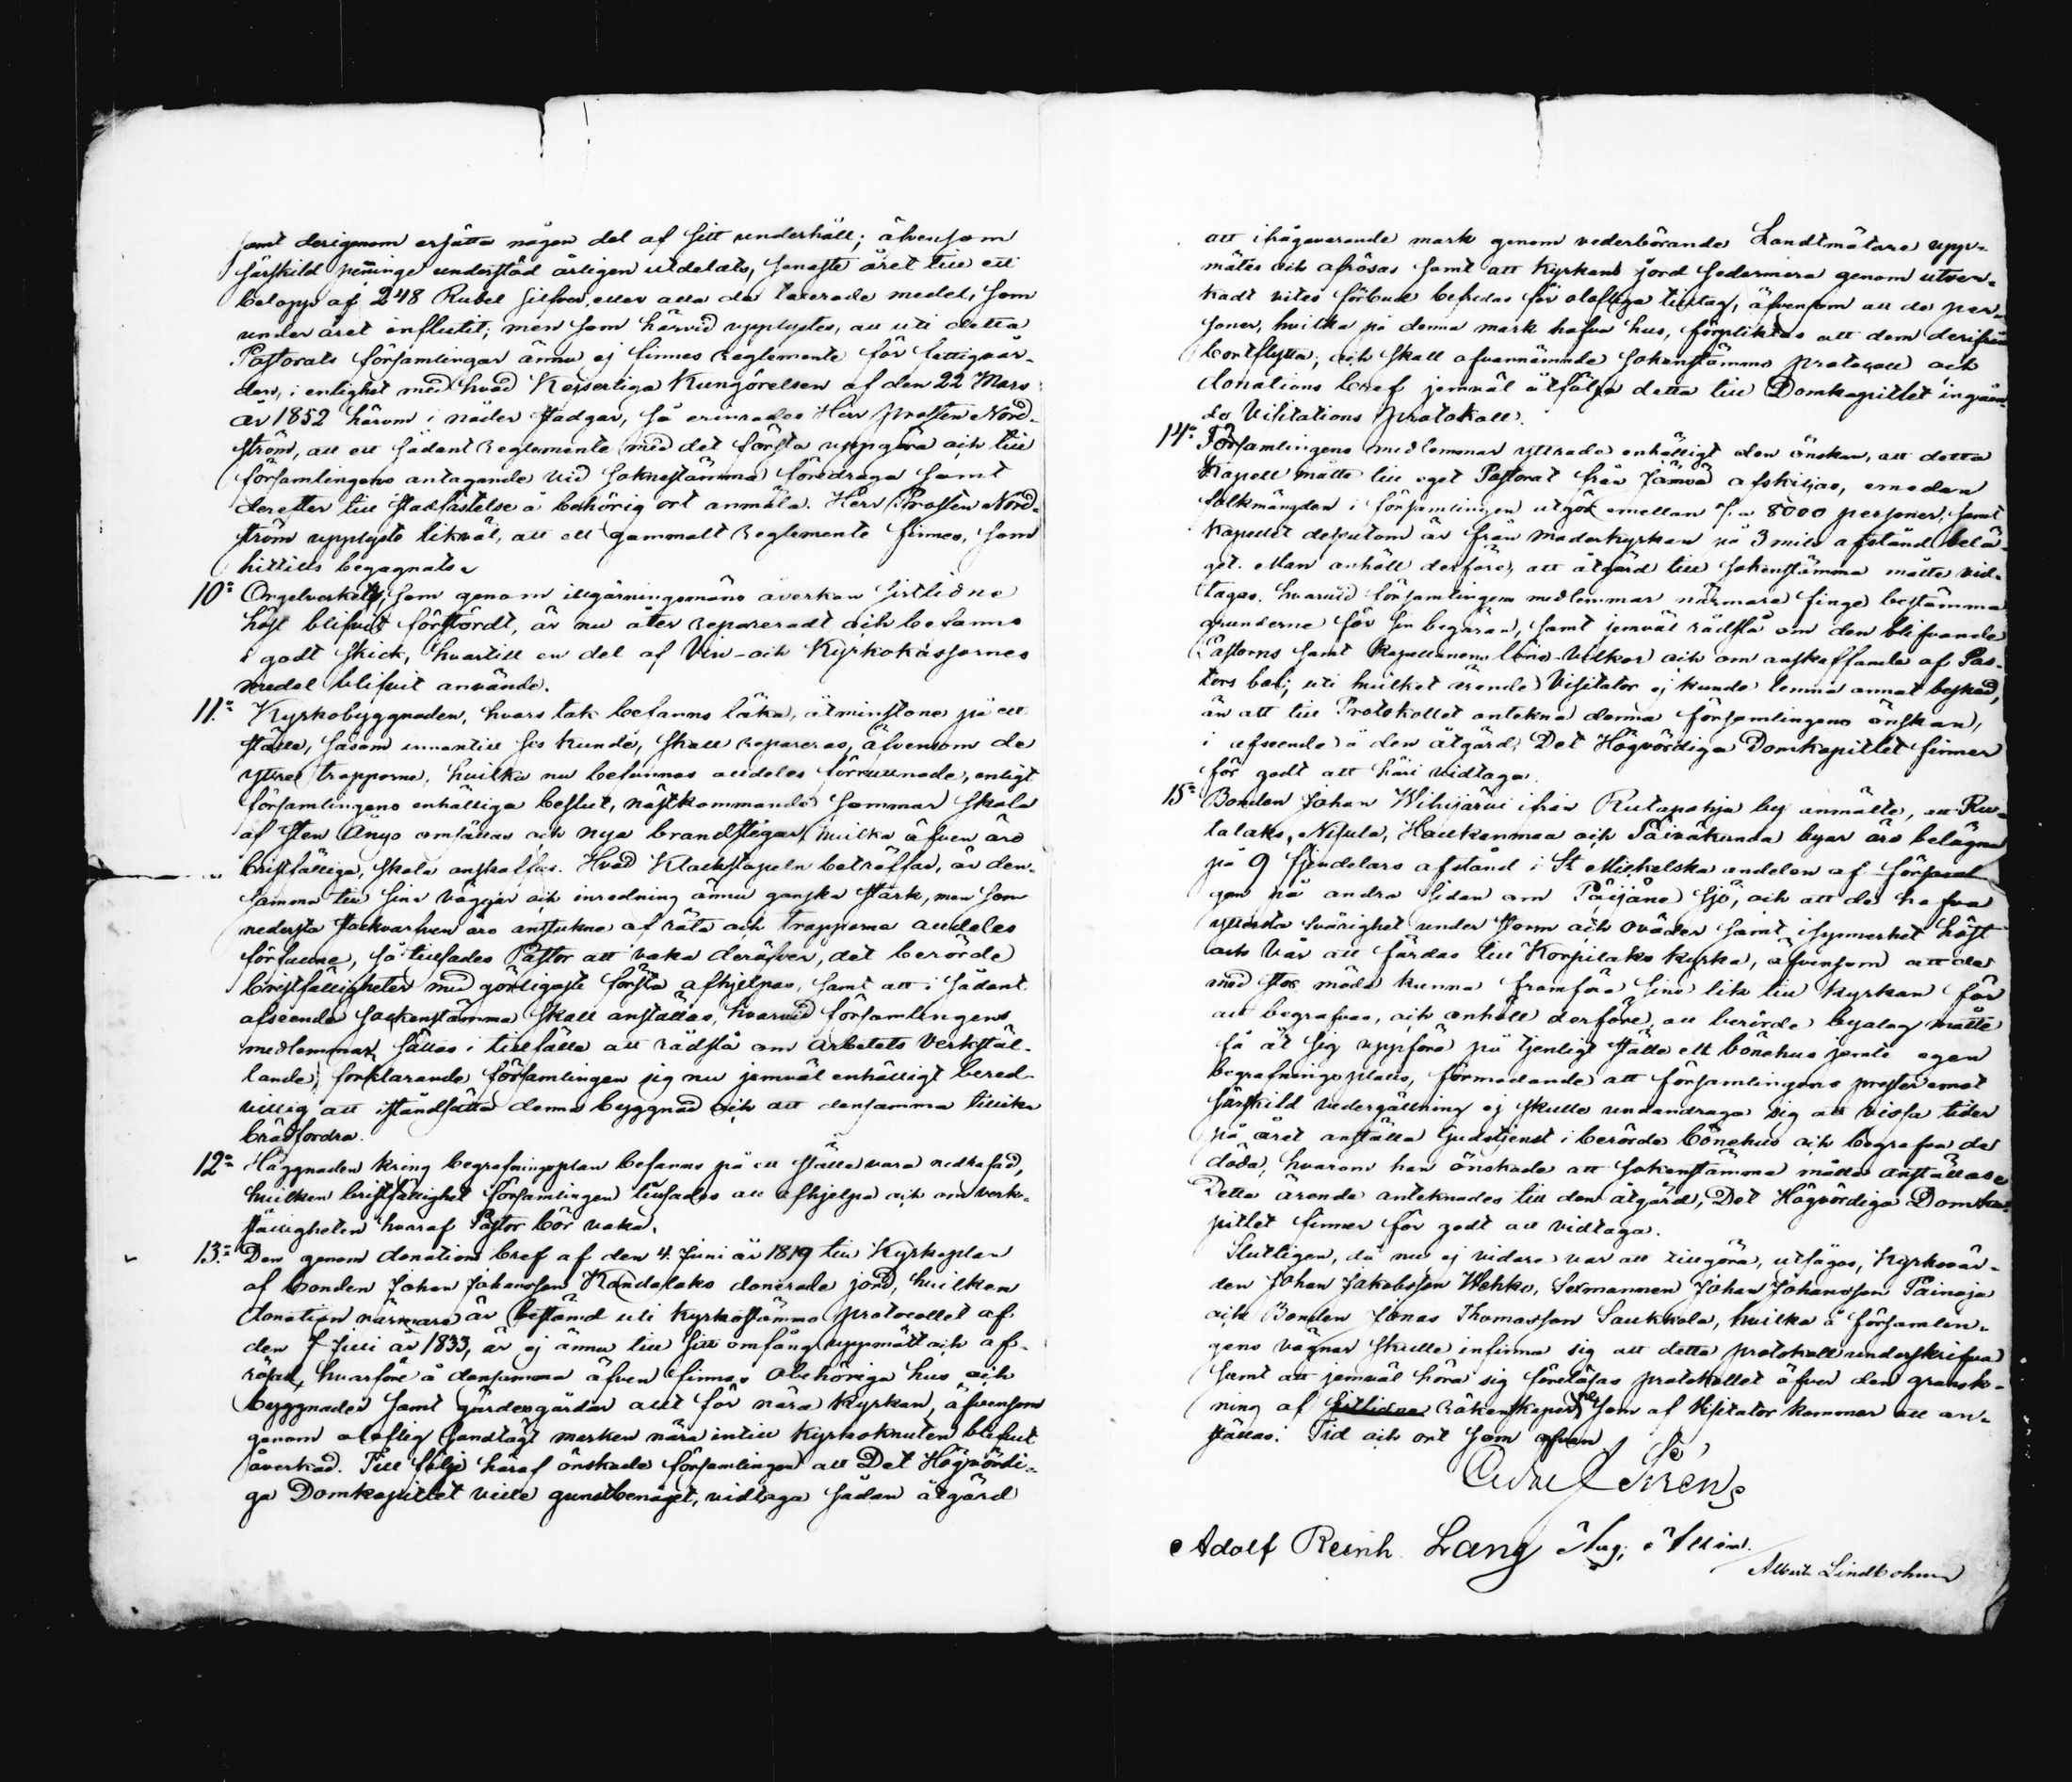 samt derigenom ersätta någon del af sitt underhåll; äfvensom
särskild penninge understöd årligen utdelats, senaste året till ett
belopp af 248 Rubel silfver, eller alla de taxerade medel, som
under året influtit; men som härvid upplystes, att uti detta
Pastorats församlingar ännu ej finnes Reglemente för fattigvår-
den, i enlighet med hvad Kejserliga Kungörelsen af den 22 Mars
år 1852 härom i nåder stadgar, så erinrades Herr Prosten Nord-
ström, att ett sådant Reglemente med det första uppgöra och till
församlingens antagande vid soknestämma föredraga samt
derefter till stadfästelse å behörig ort anmäla. Herr Prosten Nord-
ström upplyste likväl, att ett gammalt Reglemente finnes, som
hittills begagnats.
10o Orgelverket, som genom illgärningsmäns åverkan sistlidne
höst blifvit förstördt, är nu åter repareradt och befanns
i godt skick, hvartill en del af Vin- och Kyrkokassornes
medel blifvit använde.
11o Kyrkobyggnaden, hvars tak befanns läka, åtminstone på ett
ställe, såsom innantill ses kunde, skall repareras, äfvensom de
yttre trapporne, hvilka nu befunnos alldeles förruttnade, enligt
församlingens enhälliga beslut, nästkommande sommar skola
af sten ånyo omsättas och nya brandstegar, hvilka äfven äro
bristfälliga, skola anskaffas. Hvad Klockstapeln beträffar, är den-
samma till sina väggar och inredning ännu ganska stark, men som
nedersta stockvarfven äro anstuckna af röta och trapporna alldeles
förfallne, så tillsades Pastor att vaka deröfver, det berörde
bristfälligheter med görligaste första afhjelpas, samt att i sådant
afseende sockenstämma skall anställas, hvarvid församlingens
medlemmar sättas i tillfälle att rådslå om arbetets verkstäl-
lande; förklarande församlingen sig nu jemväl enhälligt bered-
villig att iståndsätta denna byggnad och att densamma tillika
brädfordra.
12o Häggnaden kring begrafningsplan befanns på ett ställe vara nedrasad,
hvilken bristfällighet församlingen tillsades att afhjelpa och om verk-
ställigheten hvaraf Pastor bör vaka.
13o Den genom donations bref af den 4 Juni år 1819 till Kyrkoplan
af bonden Johan Johansson Kandolaks donerade jord, hvilken
donation närmare är bestämd uti Kyrkostämmo protocollet af
den 7 Juli år 1833, är ej ännu till sitt omfång uppmätt och af-
rösad, hvarföre å densamma äfven finnes obehöriga hus och
byggnader samt gärdesgårdar allt för nära Kyrkan, äfvensom
genom oloflig handtägt marken nära intill Kyrkoknuten blifvit
åverkad. Till följe häraf önskade församlingen att Det Högvördi-
ga Domkapitlet ville gunstbenäget, vidtaga sådan åtgärd
att ifrågavarande mark genom vederbörande Landtmätare upp-
mätes och afrösas samt att Kyrkans jord sedermera genom utver-
kadt vites förbud befredas för olofliga tilltag, äfvensom att de per-
soner, hvilka på denna mark hafva hus, förpliktas att dem derifrån
bortflytta; och skall ofvannämnde sokenstämmo protocoll och
donations bref jemväl åtfölja detta till Domkapitlet ingåen-
de Visitations protokoll.
14o Församlingens medlemmar yttrade enhälligt den önskan, att detta
Kapell måtte till eget Pastorat från Jämsä afskiljas, emedan
folkmängden i församlingen utgör emellan 7 a 8000 personer, samt
Kapellet dessutom är från moderkyrkan på 3 mils afstånd belä-
get. Man anhöll derföre, att åtgärd till sokenstämma måtte vid-
tagas, hvarvid församlingens medlemmar närmare finge bestämma
grunderne för sin begäran, samt jemväl rådslå om den blifvande
Pastorns samt Kapellanens löne-vilkor och om anskaffande af Pas-
tors bol; uti hvilket ärende Visitator ej kunde lemna annat besked,
än att till Protokollet antekna denna församlingens önskan,
i afseende å den åtgärd, Det Högvördiga Domkapitlet finner
för godt att häri vidtaga.
15o Bonden Johan Wihijärvi ifrån Rutapohja by anmälte, att Ru-
talaks, Nisula, Haukanmaa och Päiväkunda byar äro belägna
på 9 fjendelars afstånd i St Mickelska andelen af församl
gen på andra sidan om Päijäne sjö, och att de hafva
yttersta svårighet under storm och oväder samt isynnerhet höst
och vår att färdas till Korpilaks kyrka, äfvensom att de
med stor möda kunna framföra sina lik till kyrkan för
att begrafvas, och anhöll derföre, att berörde byalag måtte
få åt sig uppföra på tjenligt ställe ett bönehus jemte egen
begrafningsplats, förmodande att församlingens prester emot
särskild vedergällning ej skulle undandraga sig att vissa tider
på året anställa Gudstjenst i berörde bönehus och begrafva de
döda, hvarom han önskade att sokenstämma måtte anställas.
Detta ärende anteknades till den åtgärd, Det Högvördiga Domka-
pitlet finner för godt att vidtaga.
Slutligen, då nu ej vidare var att tillgöra, utsågos, Kyrkovär-
den Johan Jakobsson Wehko, Sexmannen Johan Johansson Päinaja
och Bonden Jonas Thomasson Saukkola, hvilka å församlin-
gens vägnar skulle infinna sig att detta protokoll underskrifva
samt att jemväl höra sig föreläsas protokollet öfver den gransk-
ning af sistlidne räkenskaper, som af Visitator kommer att an-
ställas. Tid och ort som ofvan
Adolf Reinh. Lang Aug.
Albert Lindbohm